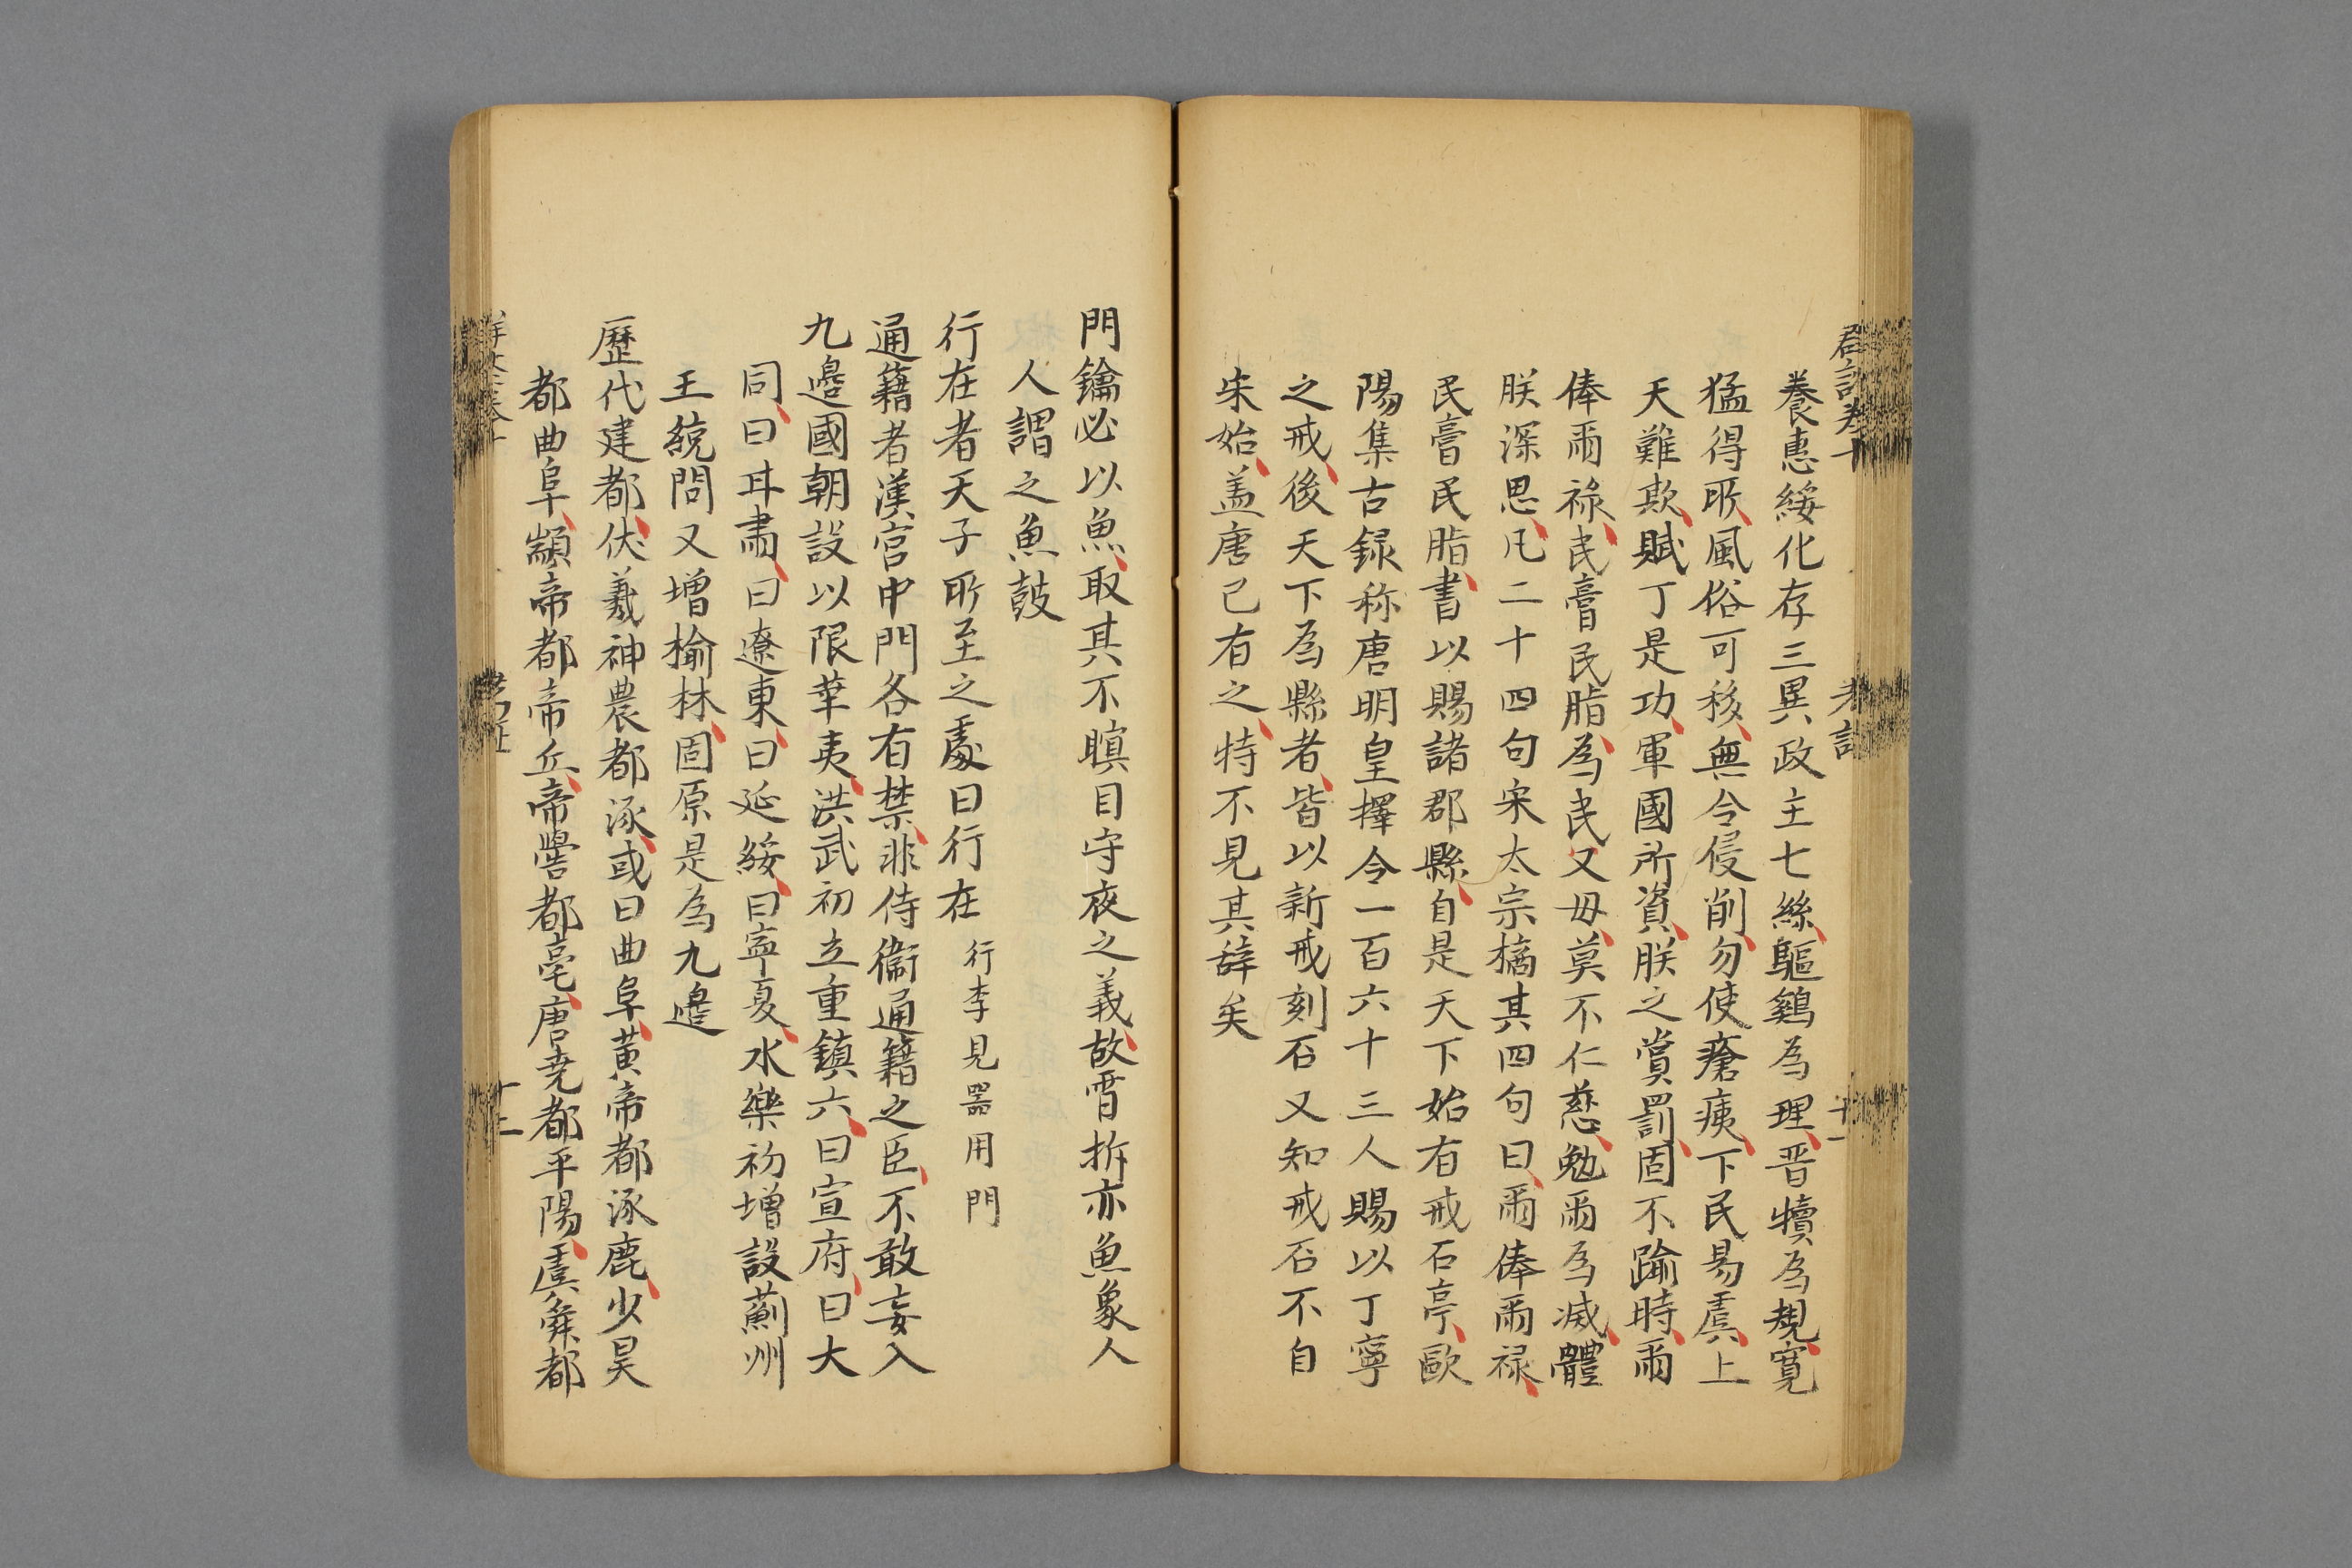 養惠綏化存三異政主七絲驅鷄為理晋犢為規寬
猛得所風俗可移無令侵削勿使瘡痍下民易虐上
天難欺賦丁是功軍國所資朕之賞罰固不踰時爾
俸爾祿民膏民脂為民父母莫不仁慈勉爾為減體
朕深思凡二十四句宋太宗摘其四句曰爾俸爾祿
民膏民脂書以賜諸郡縣自是天下始有戒石亭歐
陽集古録称唐明皇擇令一百六十三人賜以丁寧
之戒後天下為縣者皆以新戒刻石又知戒石不自
宋始盖唐已有之特不見其辭矣
門鑰必以魚取其不瞑目守夜之義故宵柝亦魚象人
人謂之魚鼓
行在者天子所至之處曰行在 行李見器用門
通籍者漢宮中門各有禁非侍衛通籍之臣不敢妄入
九邊國朝設以限華夷洪武初立重鎮六曰宣府曰大
同曰甘肅曰遼東曰延綏曰寧夏永樂初增設薊州
王統問又增榆林固原是為九邊
歷代建都伏羲神農都涿或曰曲阜黃帝都涿鹿少昊
都曲阜顓帝都帝丘帝嚳都亳唐堯都平陽虞舜都
十二